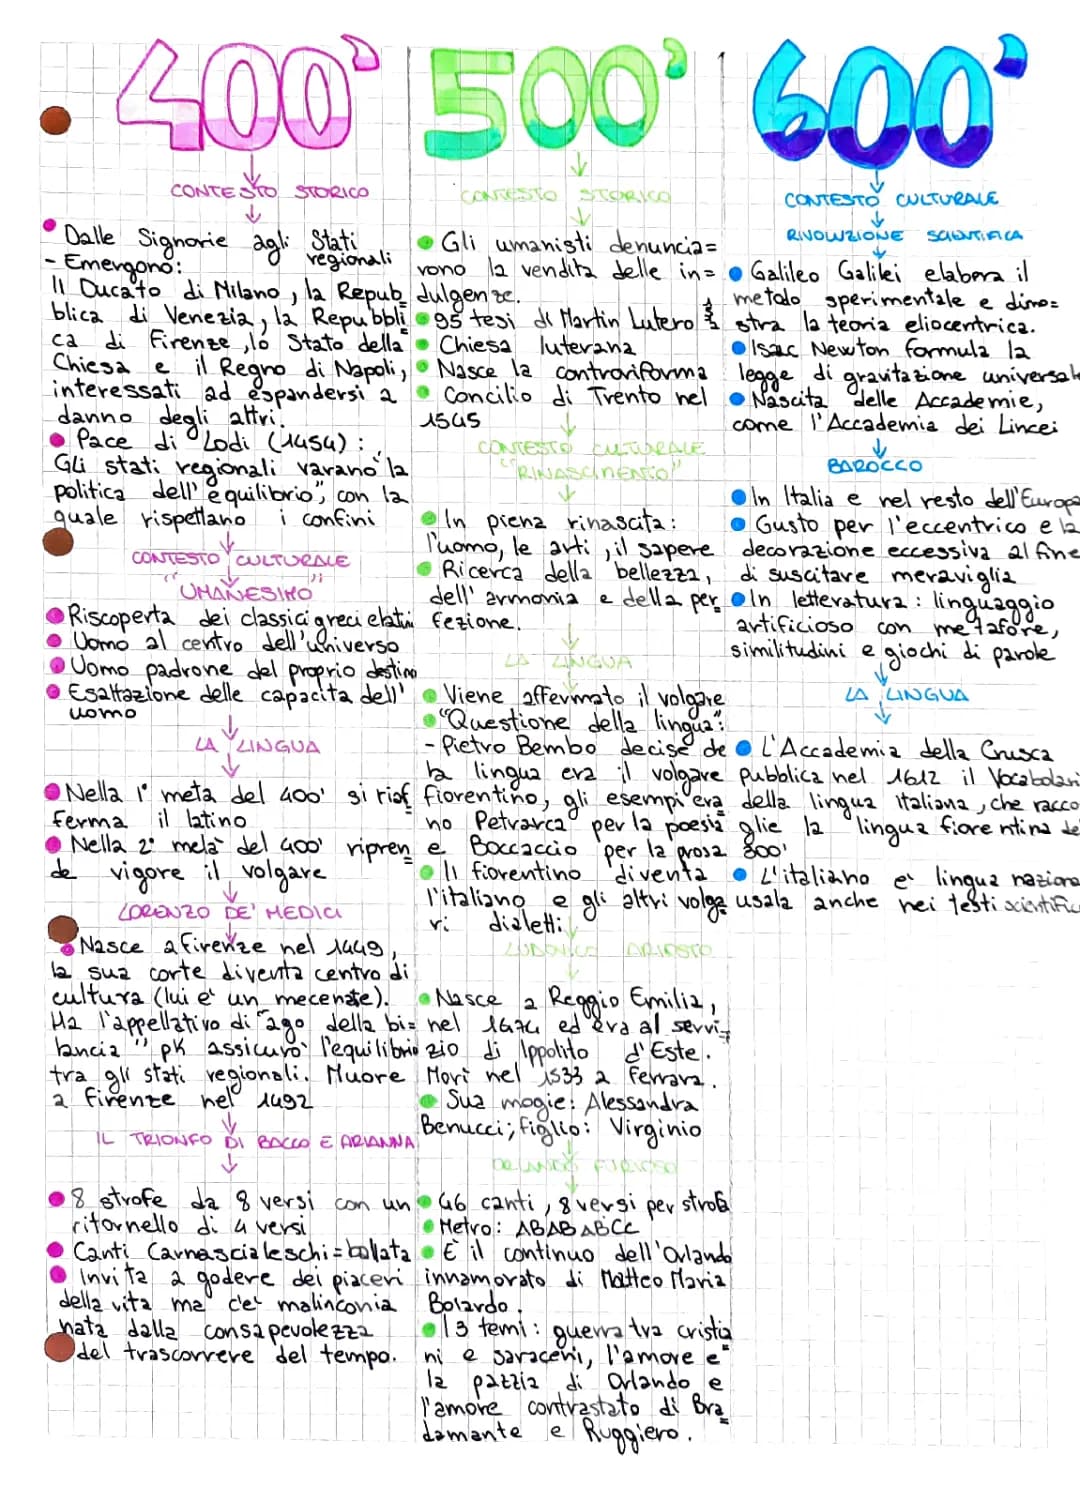 400'
CONTESTO STORICO
Dalle Signorie agli Stati
regionali
- Emergono:
Il Ducato di Milano, la Repub
blica di Venezia, la Repubbli
ca di Firenze, lo Stato della
Chiesa e il Regno di Napoli,
interessati ad espandersi a
danno degli altri.
Pace di Lodi (1454):
Gli stati regionali varano la
politica dell'"equilibrio", con la
quale rispettano i confini
CONTESTO CULTURALE
"UMANESIMO"
Riscoperta dei classici greci e latini
Uomo al centro dell'universo
Uomo padrone del proprio destino
Esaltazione delle capacita dell'
uomo
LA LINGUA
Nella 1° metà del 400' si riaf
ferma il latino
Nella 2° metà del 400' ripren
de vigore il volgare
LORENZO DE' MEDICI
Nasce a Firenze nel 1449,
la sua corte diventa centro di
cultura (lui e' un mecenate).
Ha l'appellativo di "ago della bi=
lancia" pk assicurò l'equilibrio
tra gli stati regionali. Muore
a Firenze nel 1492
IL TRIONFO DI BACCO E ARIANNA
8 strofe da 8 versi con un
ritornello di 4 versi
Canti Carnascialeschi = ballata
Invita a godere dei piaceri
della vita ma c'e' malinconia
nata dalla consapevolezza
del trascorrere del tempo.
500'
CONTESTO STORICO
Gli umanisti denuncia=
vono la vendita delle in=
dulgenze.
95 tesi di Martin Lutero
Chiesa luterana
Nasce la controriforma
Concilio di Trento nel
1545
CONTESTO CULTURALE
"RINASCIMENTO"
In piena rinascita:
l'uomo, le arti, il sapere
Ricerca della bellezza,
dell'armonia e della per
fezione.
LA LINGUA
Viene affermato il volgare
"Questione della lingua":
- Pietro Bembo decise che
la lingua era il volgare
fiorentino, gli esempi era
no Petrarca per la poesia
e Boccaccio per la prosa
Il fiorentino diventa
l'italiano e gli altri volga
ri dialetti.
LUDOVICO ARIOSTO
Nasce a Reggio Emilia,
nel 1474 ed era al servi
zio di Ippolito d'Este.
Morì nel 1533 a Ferrara.
Sua mogie: Alessandra
Benucci; figlio: Virginio
ORLANDO FURIOSO
46 canti, 8 versi per strofa
Metro: ABABABCC
È il continuo dell'Orlando
innamorato di Matteo Maria
Boiardo.
I 3 temi: guerra tra cristia
ni e saraceni, l'amore e
la pazzia di Orlando e
l'amore contrastato di Bra
damante e Ruggiero.
600'
CONTESTO CULTURALE
RIVOLUZIONE SCIENTIFICA
Galileo Galilei elabora il
metodo sperimentale e dimo=
stra la teoria eliocentrica.
Isac Newton formula la
legge di gravitazione universale
Nascita delle Accademie,
come l'Accademia dei Lincei
BAROCCO
In Italia e nel resto dell'Europa
Gusto per l'eccentrico e la
decorazione eccessiva al fine
di suscitare meraviglia
In letteratura: linguaggio
artificioso con metafore,
similitudini e giochi di parole
LA LINGUA
L'Accademia della Crusca
pubblica nel 1612 il Vocabolari
della lingua italiana, che racco
glie la lingua fiorentina de
300'
L'italiano e' lingua naziona
usata anche nei testi scientific